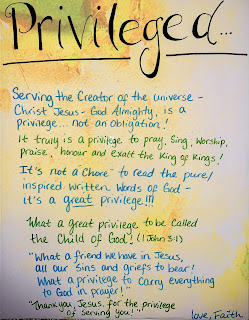 Privileged...
Serving the Creator of the universe -
Christ Jesus - God Almighty, is a
privilege... not an obligation!
It truly is a privilege to pray, sing, worship,
praise, honour and exalt the King of Kings!
It's not a chore - to read the pure/
inspired written Words of God -
it's a great privilege!!!
What a great privilege to be called
the Child of God! (1 John 3:1)
"What a friend we have in Jesus,
all our Sins and griefs to bear!
What a privilege to carry everything
to God in prayer!"
"Thankyou, Jesus, for the privilege
of serving you!"
love, Faith